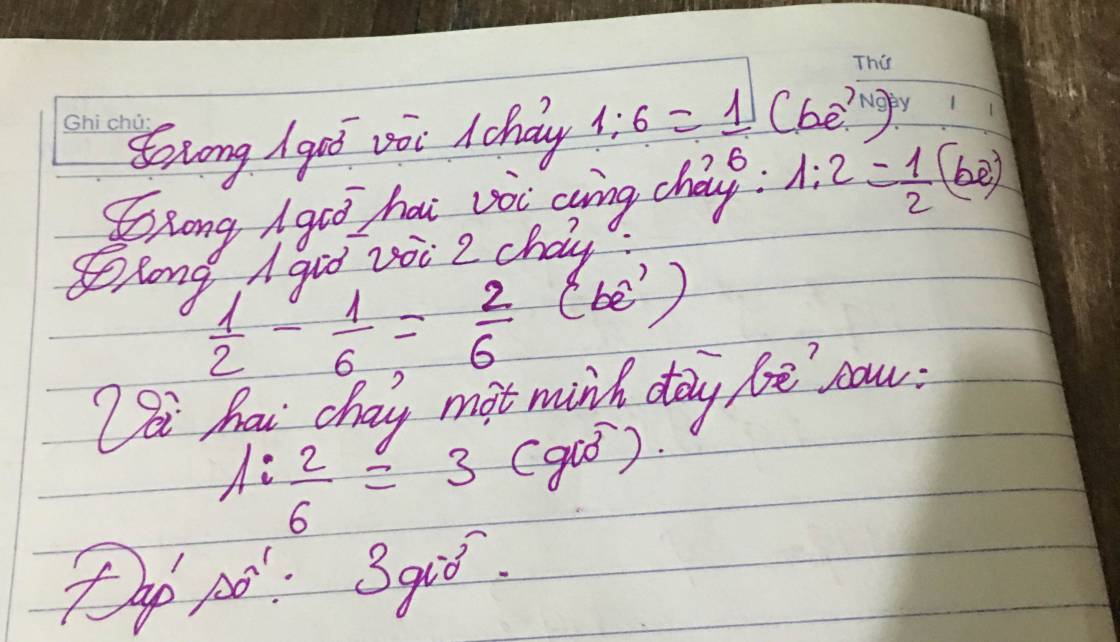 Thứ
Ngày / /
Ghi chú:
Trong 1 giờ vòi 1 chảy 1 : 6 = 1/6 (bể)
Trong 1 giờ hai vòi cùng chảy : 1 : 2 = 1/2 (bể)
Trong 1 giờ vòi 2 chảy :
1/2 - 1/6 = 2/6 (bể)
Vòi hai chảy một mình đầy bể sau :
1 : 2/6 = 3 (giờ).
Đáp số : 3 giờ.